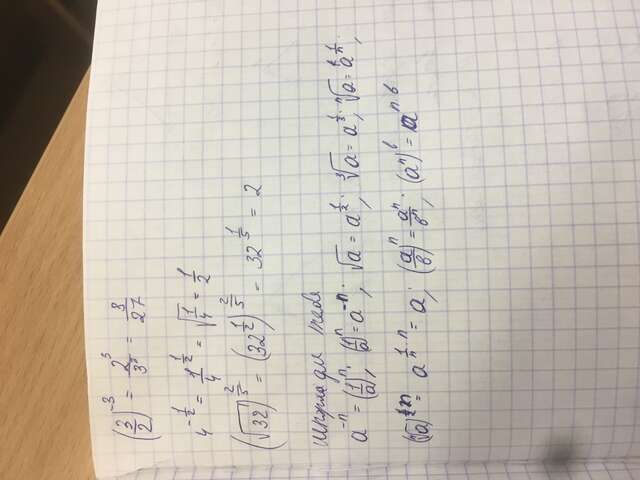 (3/2)^-3 = 2^3/3^3 = 8/27
4^-1/2 = 1/4^1/2 = √1/4 = 1/2
(√32)^2/5 = (32^1/2)^2/5 - 32^1/5 = 2
шпора для тебя
a^-n = (1/a)^n; (1/a)^n = a^-n; √a = a^1/2; ³√a = a^1/3; ⁿ√a = a^1/n;
= a^1/n·n = a; (a/b)^n = a^n/b^n; (a^n)^b = a^n·b